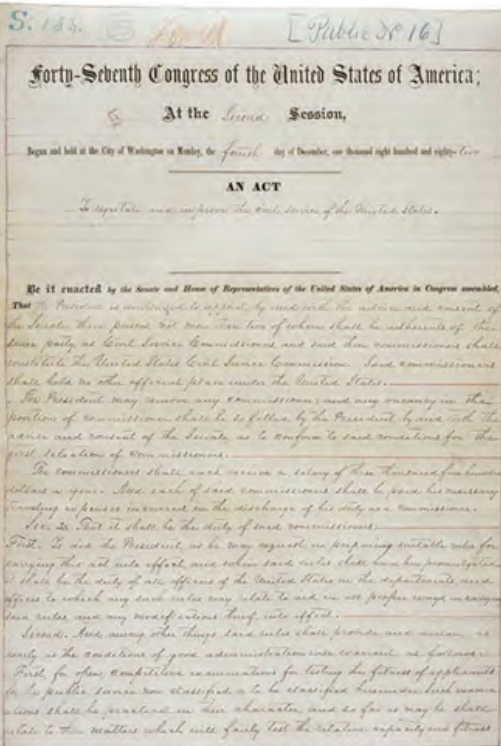 S. 133. [Public No 16]
Forty-Seventh Congress of the United States of America;
At the Second Session,
Begun and held at the City of Washington on Monday, the fourth day of December, one thousand eight hundred and eighty-two
AN ACT
To regulate and improve the civil service of the United States.
Be it enacted by the Senate and House of Representatives of the United States of America in Congress assembled,
That the President is authorized to appoint, by and with the advice and consent of
the Senate, three persons, not more than two of whom shall be adherents of the
same party, as Civil Service Commissioners, and said three commissioners shall
constitute the United States Civil Service Commission. Said commissioners
shall hold no other official place under the United States.
The President may remove any commissioner; and any vacancy in the
position of commissioner shall be so filled by the President, by and with the
advice and consent of the Senate, as to conform to said conditions for the
first selection of commissioners.
The commissioners shall each receive a salary of three thousand five hundred
dollars a year. And each of said commissioners shall be paid his necessary
traveling expenses incurred in the discharge of his duty as a commissioner.
Sec. 2. That it shall be the duty of said commissioners:
First. To aid the President, as he may request, in preparing suitable rules for
carrying this act into effect, and when said rules shall have been promulgated
it shall be the duty of all officers of the United States in the departments and
offices to which any such rules may relate to aid, in all proper ways, in carrying
said rules, and any modifications thereof, into effect.
Second. And, among other things, said rules shall provide and declare, as
nearly as the conditions of good administration will warrant, as follows:
First, for open, competitive examinations for testing the fitness of applicants
for the public service now classified or to be classified hereunder. Such examin
ations shall be practical in their character, and so far as may be shall
relate to those matters which will fairly test the relative capacity and fitness